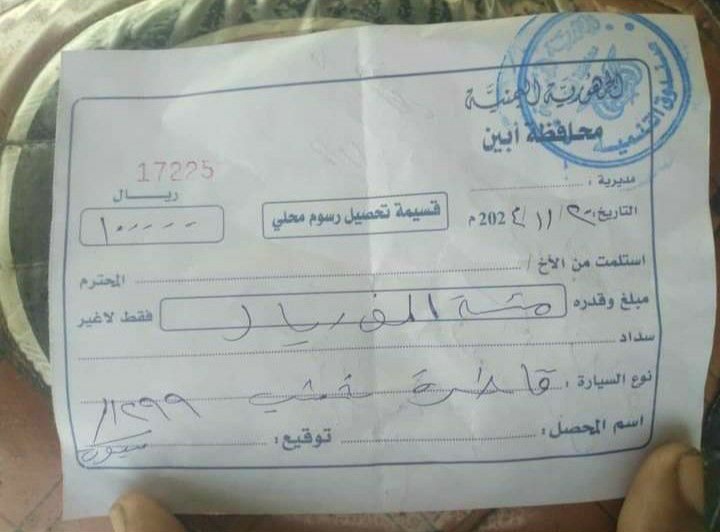 الجمهورية اليمنية
محافظة أبين
صندوق التنمية
مديرية :
17225
ريال
١٠٠٠٠٠
قسيمة تحصيل رسوم محلي
التاريخ: ٢٠ / ١١ / 202٤ م
استلمت من الأخ / المحترم
مبلغ وقدره مئة الف ريال فقط لاغير
سداد
نوع السيارة : قاطرة خشب ١١٢٩٩
اسم المحصل: توقيع: